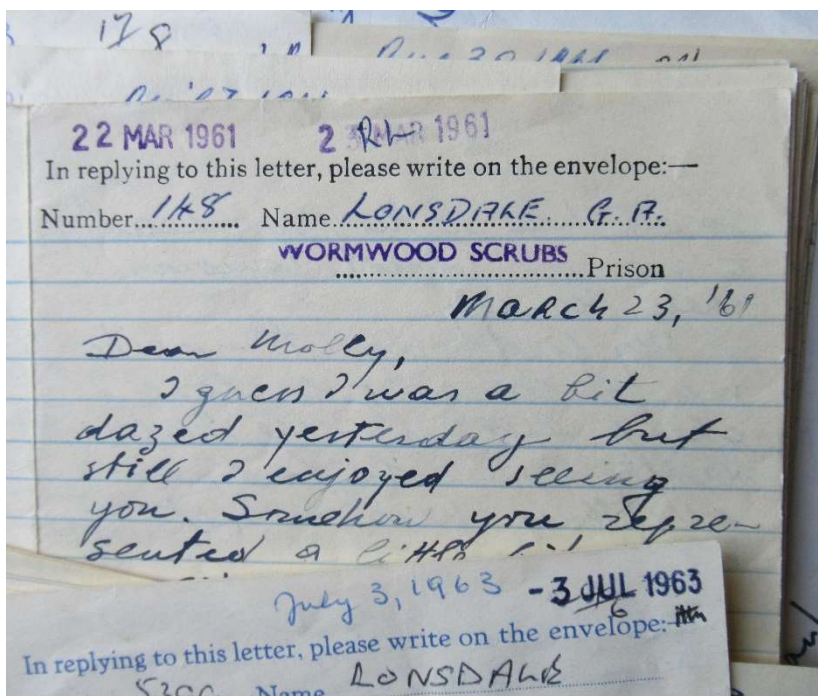 178
22 MAR 1961 2 MAR 1961
In replying to this letter, please write on the envelope:—
Number 148 Name LONSDALE G. A.
WORMWOOD SCRUBS Prison
March 23, '61
Dear Molly,
I guess I was a bit
dazed yesterday but
still I enjoyed seeing
you. Somehow you repre-
sented a little
July 3, 1963 - 3 JUL 1963
In replying to this letter, please write on the envelope:—
Name LONSDALE